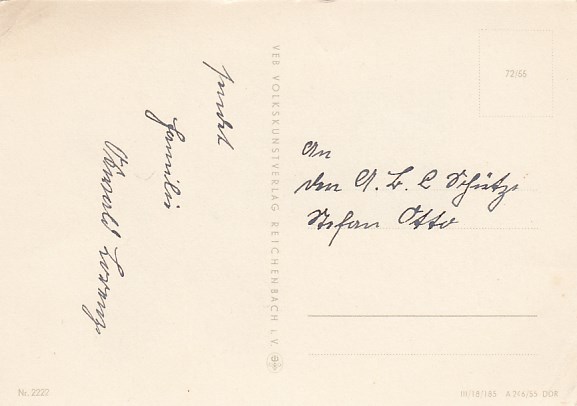 sendet
Familie
Oswald Lorenz
VEB VOLKSKUNSTVERLAG REICHENBACH i. V.
72/55
An
den A. B. C Schütze
Stefan Otto
Nr. 2222
III/18/185 A 216/56 DDR